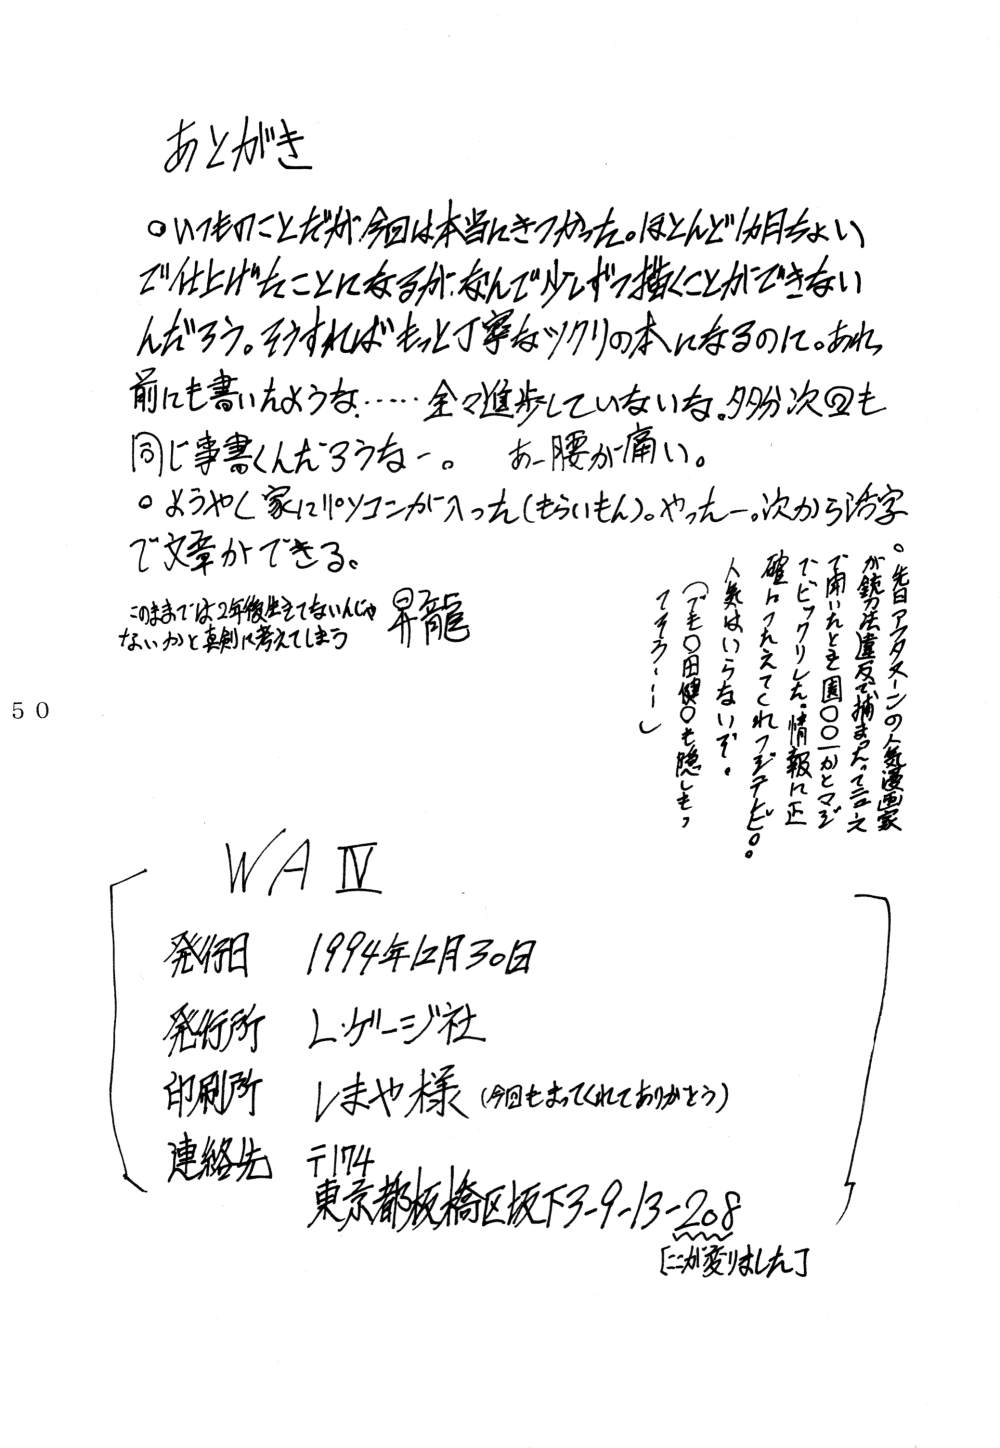 あとがき
○いつものことだが今回は本当にきつかった。ほとんど1カ月ちょい
で仕上げたことになるが、なんで少しずつ描くことができない
んだろう。そうすればもっと丁寧なツクリの本になるのに。あれっ
前にも書いたような……全々進歩していないな。多分次回も
同じ事書くんだろうなー。 あー腰が痛い。
○ようやく家にパソコンが入った(もらいもん)。やったー。次から活字
で文章ができる。
このままでは2年後生きてないんじゃ
ないかと真剣に考えてしまう
昇龍
○先日アフタヌーンの人気漫画家
が銃刀法違反で捕まったってニュース
で聞いたとき園○○一かとマジ
でビックリした。情報は正
確につたえてくれフジテレビ。
人気はいらないぞ。
(でも○田健○も隠しもっ
てそうーーー)
50
WA IV
発行日 1994年12月30日
発行所 L・ゲージ社
印刷所 しまや様(今回もまってくれてありがとう)
連絡先 〒174
東京都板橋区坂下3-9-13-208
[ここが変りました]